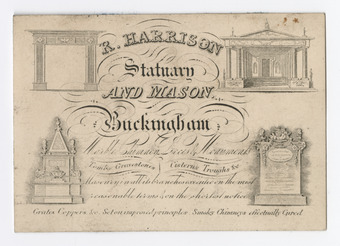 R. HARRISON
Statuary
AND MASON.
Buckingham
Marble & Monuments
Tombs, Gravestones, Cisterns, Troughs &c
Masonry in all its branches executed on the most
reasonable terms & on the shortest notice
Grates Coppers &c. Set on improved principles Smokey Chimneys effectually Cured